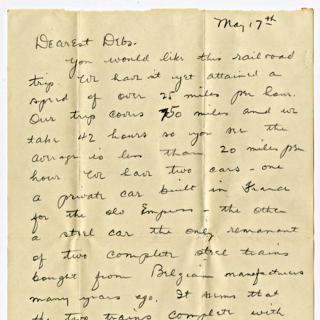 May 17th
Dearest Debs.
You would like this railroad
trip. We haven't yet attained a
speed of over 25 miles per hour.
Our trip covers 750 miles and we
take 42 hours so you see the
average is less than 20 miles per
hour. We have two cars - one
a private car built in France
for the old Empress - the other
a steel car the only remanant
of two complete steel trains
bought from Belgian manufacturers
many years ago. It seems that
the two trains complete with